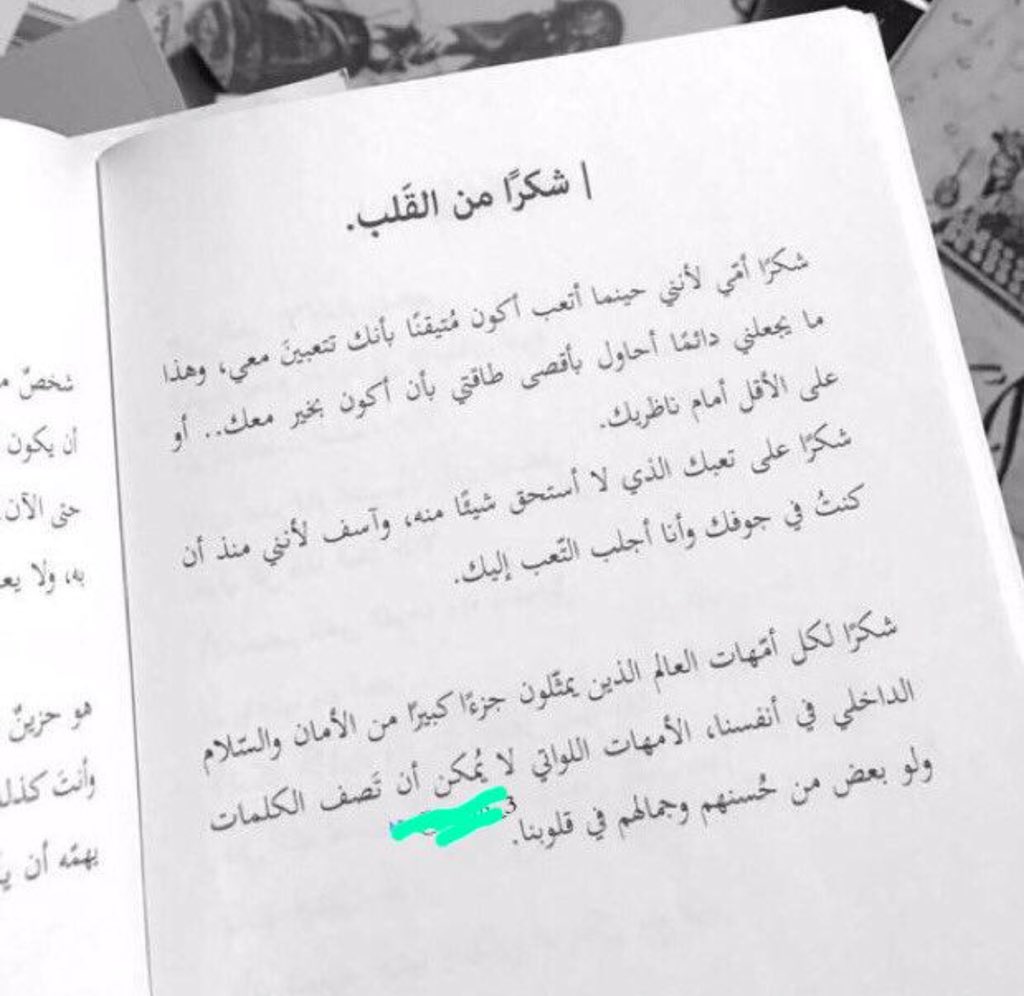 | شكرًا من القَلب.
شكرًا أمّي لأنني حينما أتعب أكون مُتيقنًا بأنك تتعبينَ معي، وهذا
ما يجعلني دائمًا أحاول بأقصى طاقتي بأن أكون بخير معك.. أو
على الأقل أمام ناظريك.
شكرًا على تعبك الذي لا أستحق شيئًا منه، وآسف لأنني منذ أن
كنتُ في جوفك وأنا أجلب التّعب إليك.
شكرًا لكل أمّهات العالم الذين يمثّلون جزءًا كبيرًا من الأمان والسّلام
الداخلي في أنفسنا، الأمهات اللواتي لا يُمكن أن تَصف الكلمات
ولو بعض من حُسنهم وجمالهم في قلوبنا.
3
شخصٌ
أن يكون
حتى الآن
به، ولا
هو حزينٌ
وأنتَ
يهمّه أن